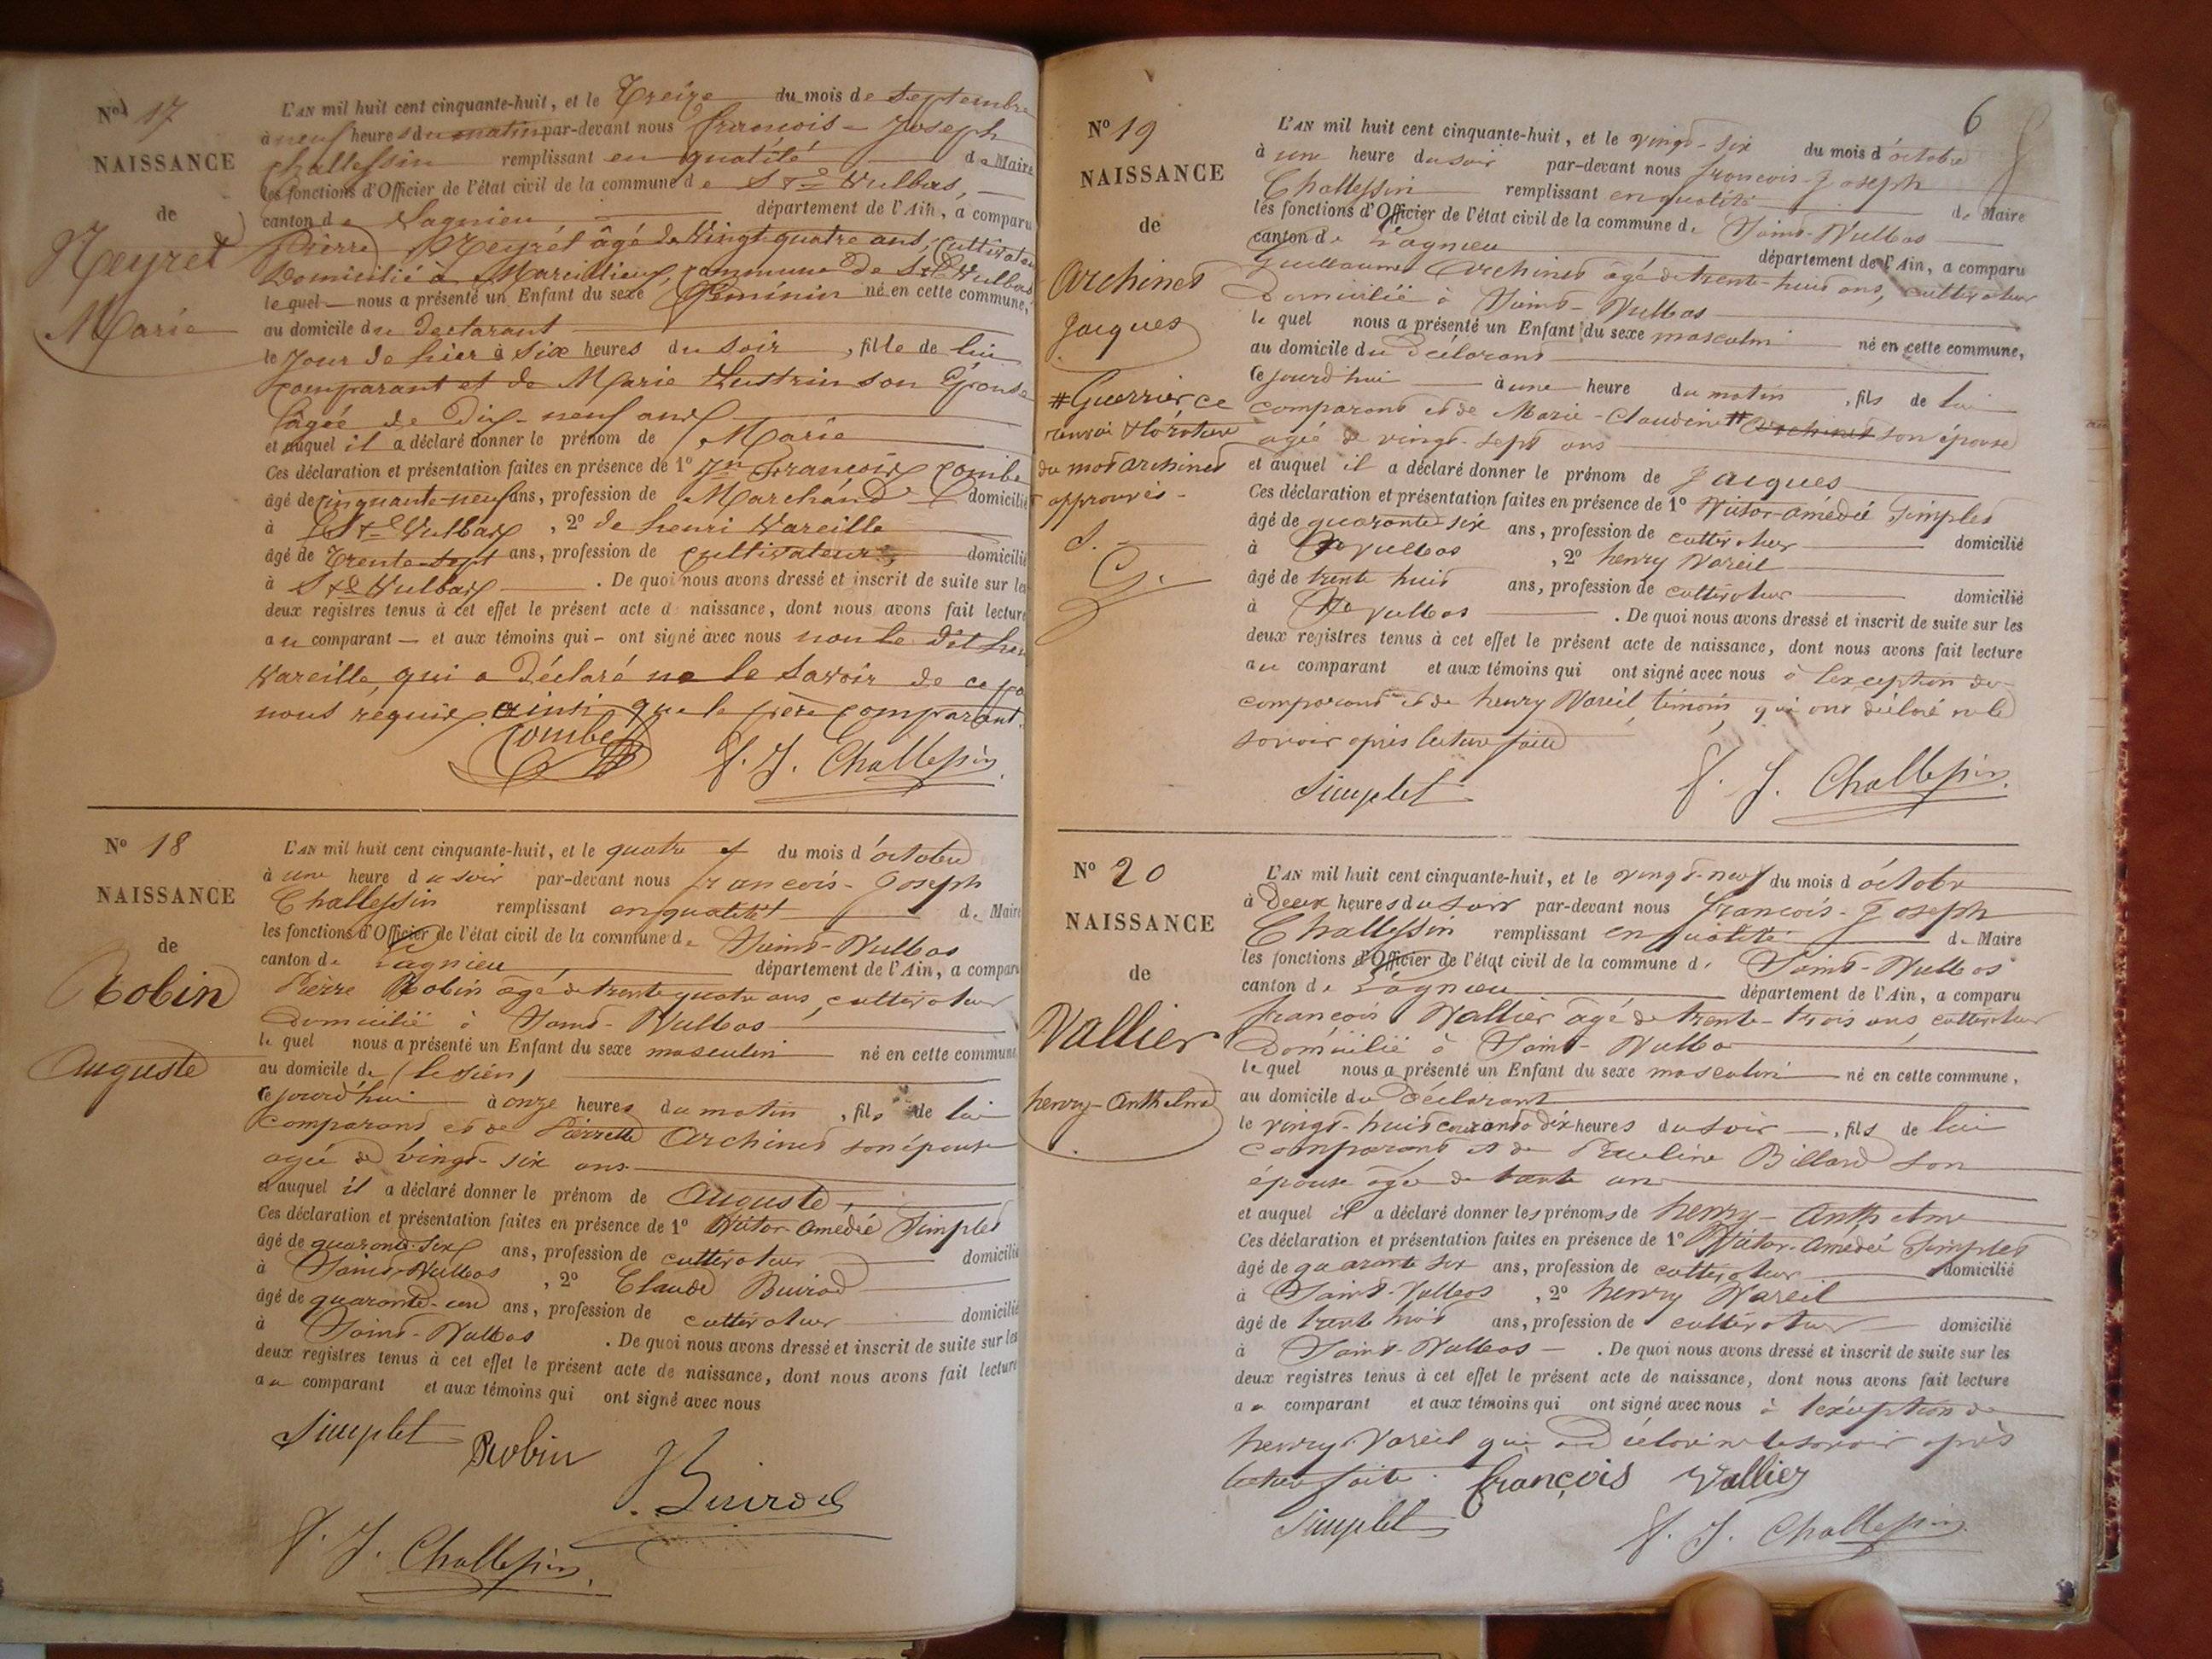 N° 17
NAISSANCE
de
Neyret
Marie
L'AN mil huit cent cinquante-huit, et le Treize du mois de Septembre
à neuf heures du matin par-devant nous françois-Joseph
Challessin remplissant en qualité de Maire
les fonctions d'Officier de l'état civil de la commune de St Vulbas,
canton de Lagnieu département de l'Ain, a comparu
Pierre Neyret âgé de Vingt quatre ans, Cultivateur
Domicilié à Marcillieux, commune de St Vulbas
le quel nous a présenté un Enfant du sexe féminin né en cette commune,
au domicile du déclarant
le jour de hier à six heures du soir, fille de lui
comparant et de Marie son Épouse
âgée de Dix-neuf ans
et auquel il a déclaré donner le prénom de Marie
Ces déclaration et présentation faites en présence de 1° Jn François Combe
âgé de cinquante-neuf ans, profession de Marchand domicilié
à St Vulbas, 2° de henri Vareille
âgé de Trente-sept ans, profession de Cultivateur, domicilié
à St Vulbas. De quoi nous avons dressé et inscrit de suite sur les
deux registres tenus à cet effet le présent acte de naissance, dont nous avons fait lecture
au comparant et aux témoins qui ont signé avec nous non le dit
Vareille, qui a Déclaré ne le savoir de ce
nous requis ainsi que le père comparant.
Combe F. J. Challessin
N° 18
NAISSANCE
de
Robin
Auguste
L'AN mil huit cent cinquante-huit, et le quatre du mois d'octobre
à une heure du soir par-devant nous françois-Joseph
Challessin remplissant en qualité de Maire
les fonctions d'Officier de l'état civil de la commune de Saint-Vulbas
canton de Lagnieu département de l'Ain, a comparu
Pierre Robin âgé de trente quatre ans, cultivateur
Domicilié à Saint-Vulbas
le quel nous a présenté un Enfant du sexe masculin né en cette commune,
au domicile de (le sien)
Cejourd'hui à onze heures du matin, fils de lui
comparant et de Pierrette Archinet son épouse
agée de vingt-six ans
et auquel il a déclaré donner le prénom de Auguste,
Ces déclaration et présentation faites en présence de 1° Victor-Amédée Simplet
âgé de quarante-six ans, profession de cultivateur domicilié
à Saint-Vulbas, 2° Claude Buirod
âgé de quarante-un ans, profession de cultivateur domicilié
à Saint-Vulbas. De quoi nous avons dressé et inscrit de suite sur les
deux registres tenus à cet effet le présent acte de naissance, dont nous avons fait lecture
au comparant et aux témoins qui ont signé avec nous
Simplet Robin Buirod
F. J. Challessin
6
N° 19
NAISSANCE
de
Archinet
Jacques
#Guerrier, ce
renvoi & la rature
du mot archinet
approuvés
L'AN mil huit cent cinquante-huit, et le vingt-six du mois d'octobre
à une heure du soir par-devant nous françois-Joseph
Challessin remplissant en qualité de Maire
les fonctions d'Officier de l'état civil de la commune de Saint-Vulbas
canton de Lagnieu département de l'Ain, a comparu
Guillaume Archinet âgé de trente-huit ans, cultivateur
Domicilié à Saint-Vulbas
le quel nous a présenté un Enfant du sexe masculin né en cette commune,
au domicile du déclarant
Cejourd'hui à une heure du matin, fils de lui
comparant et de Marie-Claudine # Archinet son épouse
agée de vingt-sept ans
et auquel il a déclaré donner le prénom de Jacques
Ces déclaration et présentation faites en présence de 1° Victor-Amédée Simplet
âgé de quarante-six ans, profession de cultivateur domicilié
à St Vulbas, 2° henry Vareil
âgé de trente huit ans, profession de cultivateur domicilié
à St Vulbas. De quoi nous avons dressé et inscrit de suite sur les
deux registres tenus à cet effet le présent acte de naissance, dont nous avons fait lecture
au comparant et aux témoins qui ont signé avec nous à l'exception du
comparant et de henry Vareil, témoin, qui ont déclaré ne le
savoir après lecture faite
Simplet F. J. Challessin
N° 20
NAISSANCE
de
Vallier
henry-Anthelme
L'AN mil huit cent cinquante-huit, et le vingt-neuf du mois d'octobre
à Deux heures du soir par-devant nous françois-Joseph
Challessin remplissant en qualité de Maire
les fonctions d'Officier de l'état civil de la commune de Saint-Vulbas
canton de Lagnieu département de l'Ain, a comparu
françois Vallier agé de trente-trois ans, cultivateur
Domicilié à Saint-Vulbas
le quel nous a présenté un Enfant du sexe masculin né en cette commune,
au domicile du déclarant
le vingt-huit courant à dix heures du soir, fils de lui
comparant et de Pauline Billard son
épouse agée de trente ans
et auquel il a déclaré donner les prénoms de henry-Anthelme
Ces déclaration et présentation faites en présence de 1° Victor-Amédée Simplet
âgé de quarante six ans, profession de cultivateur domicilié
à Saint-Vulbas, 2° henry Vareil
âgé de trente huit ans, profession de cultivateur domicilié
à Saint-Vulbas. De quoi nous avons dressé et inscrit de suite sur les
deux registres tenus à cet effet le présent acte de naissance, dont nous avons fait lecture
au comparant et aux témoins qui ont signé avec nous à l'exception de
henry Vareil qui a déclaré ne le savoir après
lecture faite. françois Vallier
Simplet F. J. Challessin